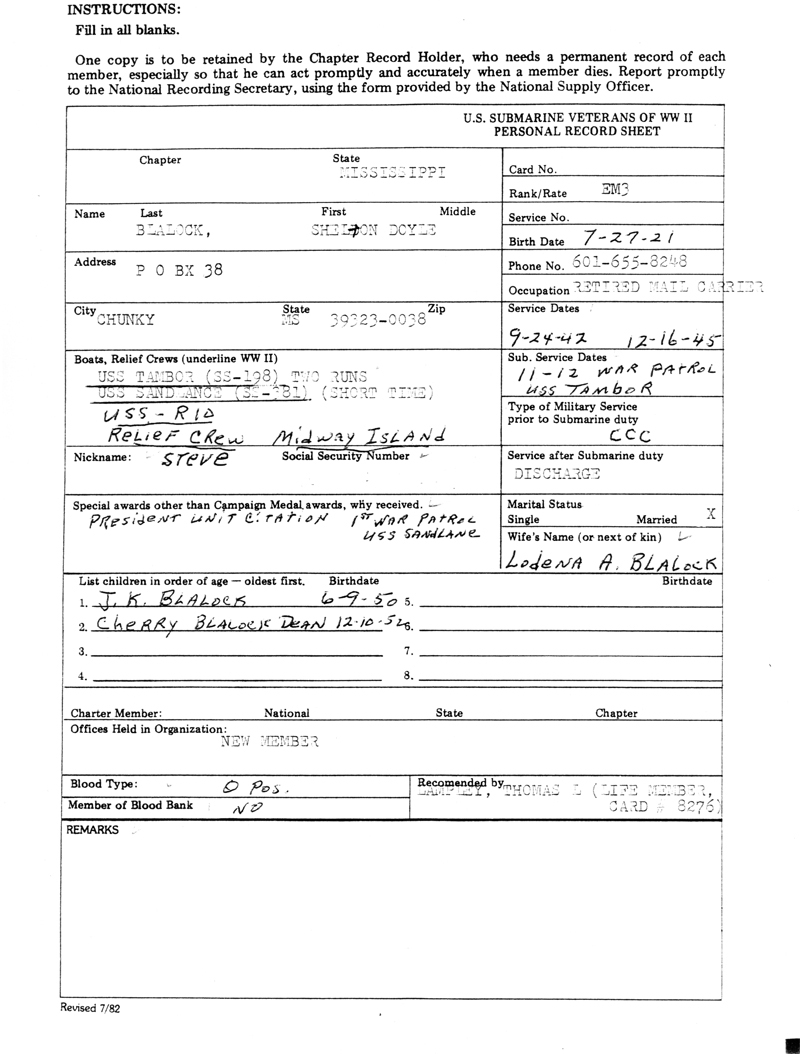 INSTRUCTIONS:
Fill in all blanks.
One copy is to be retained by the Chapter Record Holder, who needs a permanent record of each
member, especially so that he can act promptly and accurately when a member dies. Report promptly
to the National Recording Secretary, using the form provided by the National Supply Officer.
U.S. SUBMARINE VETERANS OF WW II
PERSONAL RECORD SHEET
Chapter State
MISSISSIPPI
Card No.
Rank/Rate EM3
Name Last First Middle
BLALOCK, SHELTON DOYLE
Service No.
Birth Date 7-27-21
Address P O BX 38
Phone No. 601-655-8248
Occupation RETIRED MAIL CARRIER
City CHUNKY State MS 39323-0038 Zip
Service Dates
9-24-42 12-16-45
Boats, Relief Crews (underline WW II)
USS TAMBOR (SS-198) TWO RUNS
USS SANDLANCE (SS-381) (SHORT TIME)
USS - R10
RELIEF CREW MIDWAY ISLAND
Sub. Service Dates
11-12 WAR PATROL
USS TAMBOR
Type of Military Service
prior to Submarine duty
CCC
Nickname: STEVE Social Security Number
Service after Submarine duty
DISCHARGE
Special awards other than Campaign Medal awards, why received.
PRESIDENT UNIT CITATION 1ST WAR PATROL
USS SANDLANE
Marital Status
Single Married X
Wife's Name (or next of kin)
LODENA A. BLALOCK
List children in order of age — oldest first. Birthdate Birthdate
1. J. K. BLALOCK 6-9-50 5.
2. CHERRY BLALOCK DEAN 12-10-52 6.
3. 7.
4. 8.
Charter Member: National State Chapter
Offices Held in Organization:
NEW MEMBER
Blood Type: O POS.
Recomended by LAMPLEY, THOMAS L (LIFE MEMBER,
CARD # 8276)
Member of Blood Bank NO
REMARKS
Revised 7/82